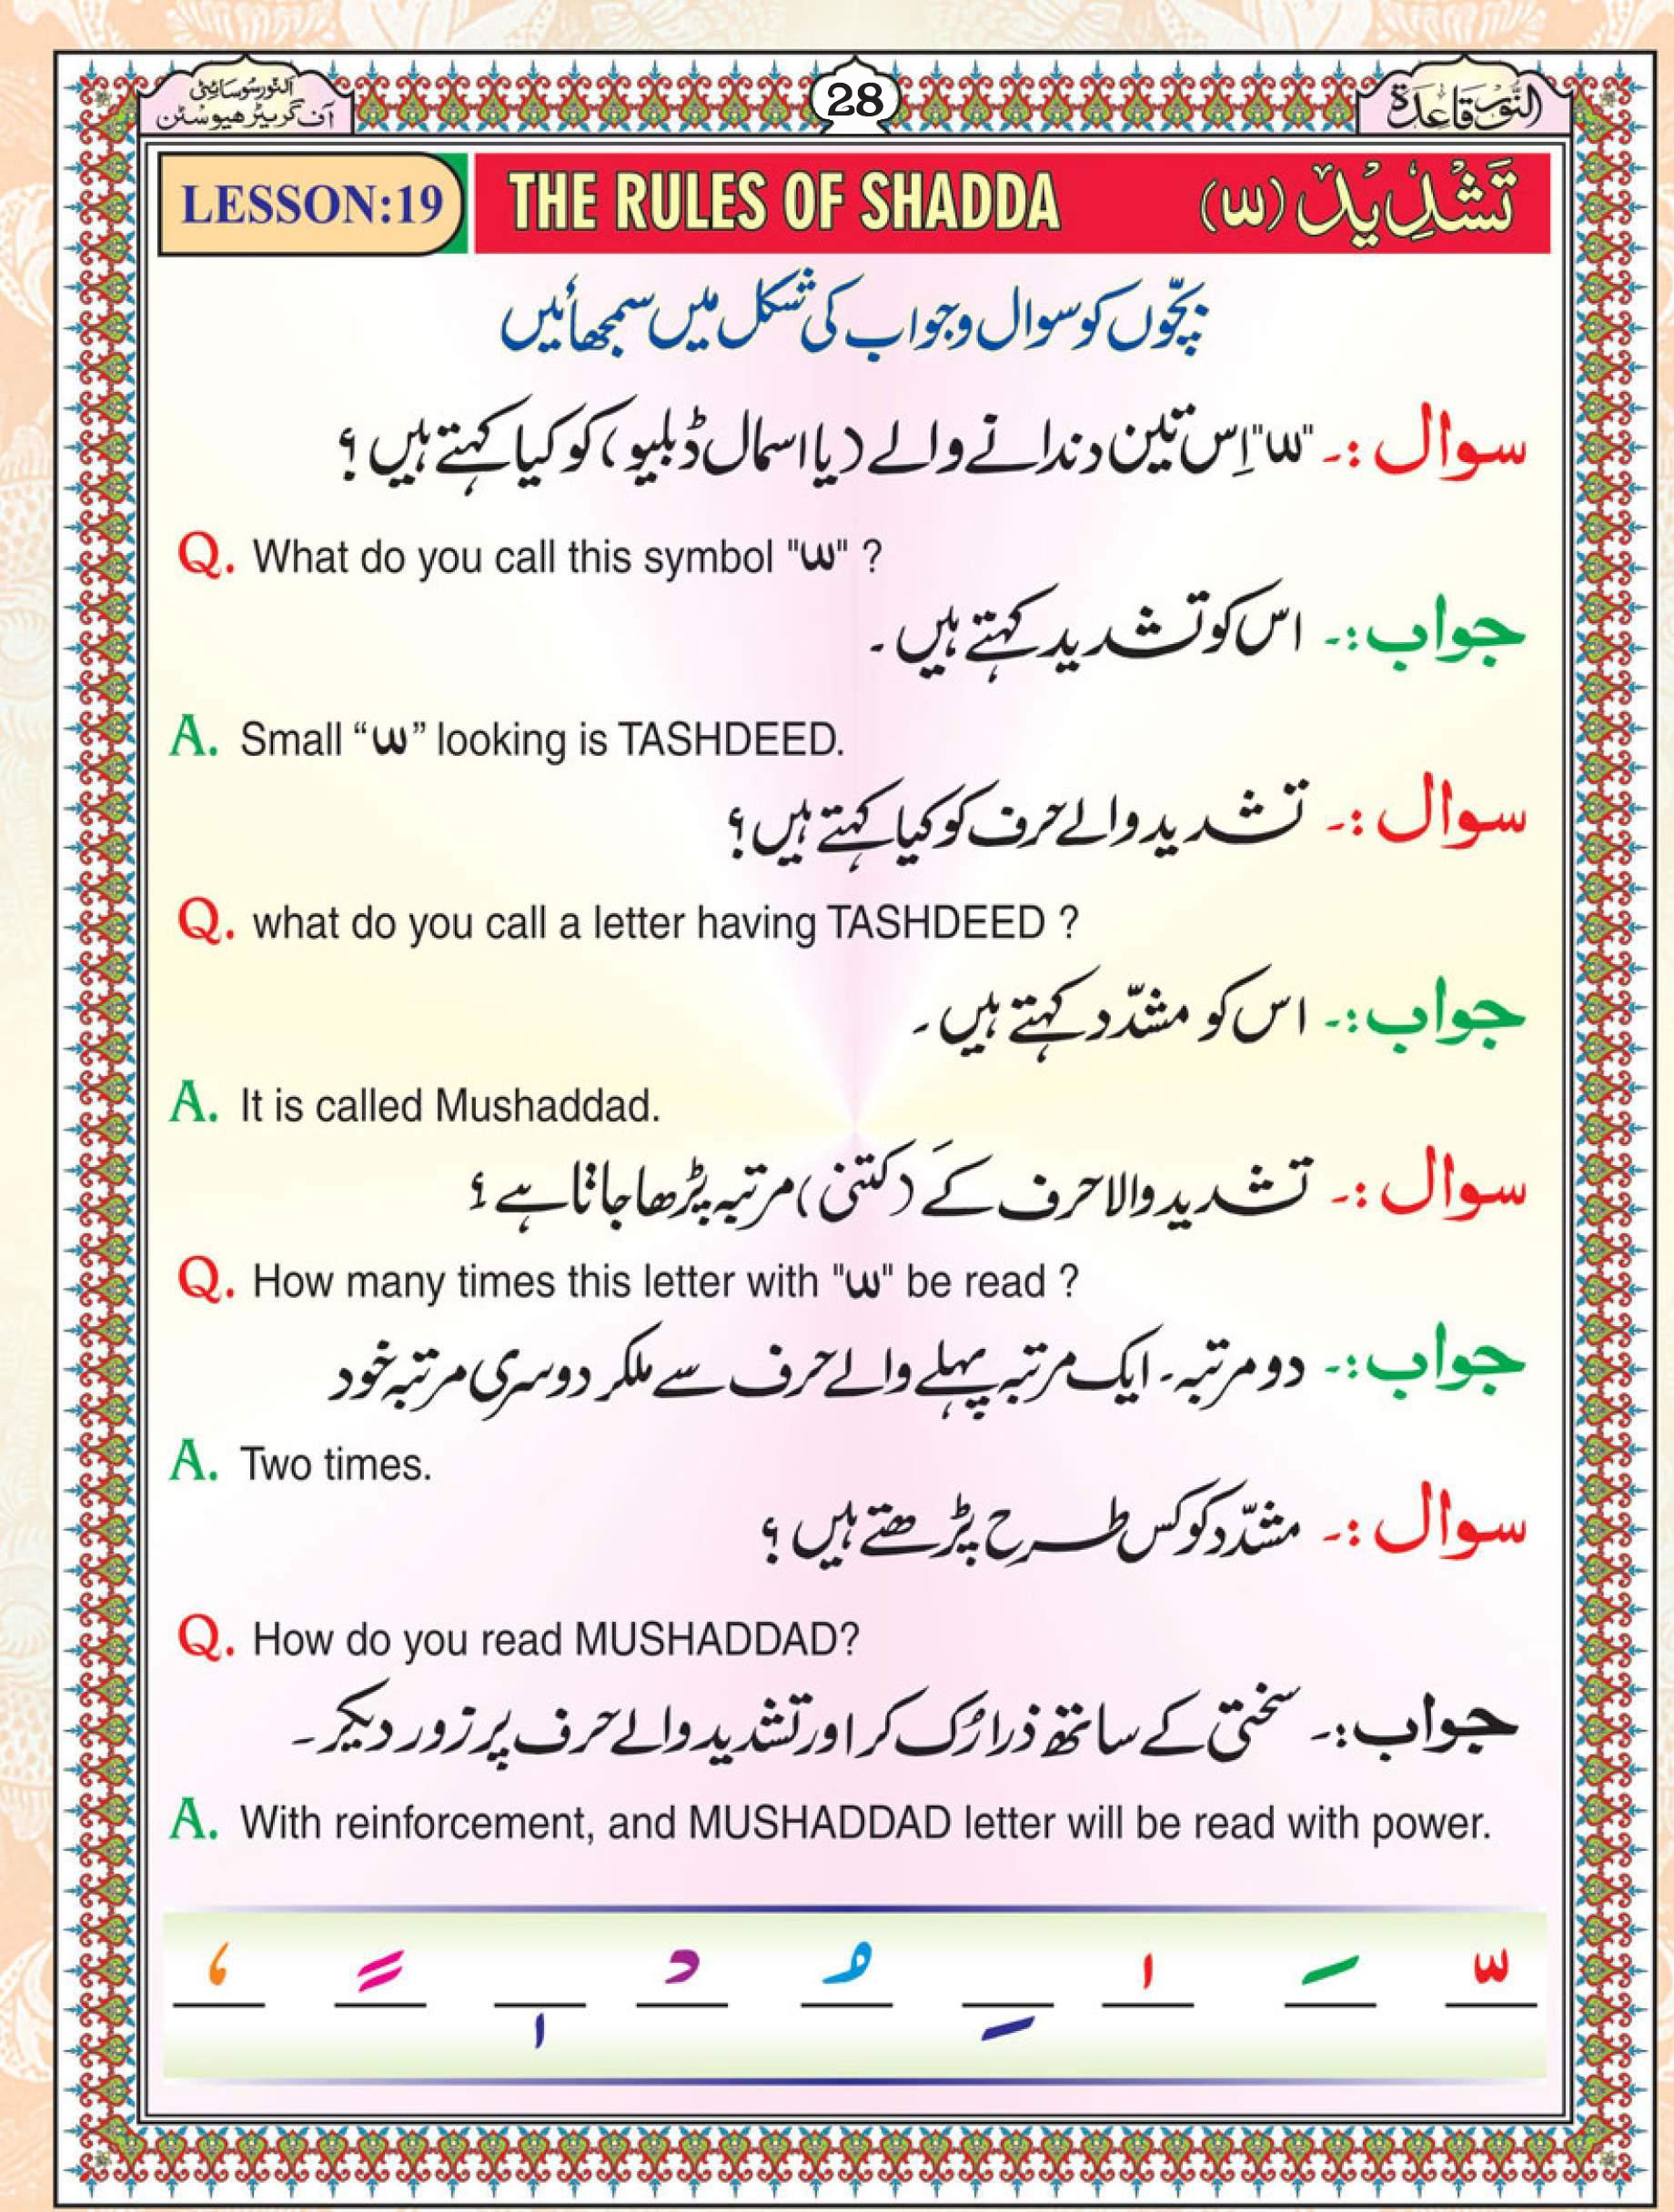 النور سوسائٹی
آف گریٹر ھیوسٹن
28
النُّوْر قَاعِدَة
LESSON:19
THE RULES OF SHADDA
تَشْدِيْدْ (ّ)
بچّوں کو سوال و جواب کی شکل میں سمجھائیں
سوال :۔ "ّ" اِس تین دندانے والے (یا اسمال ڈبلیو) کو کیا کہتے ہیں ؟
Q. What do you call this symbol "ّ" ?
جواب :۔ اس کو تشدید کہتے ہیں ۔
A. Small “ّ” looking is TASHDEED.
سوال :۔ تشدید والے حرف کو کیا کہتے ہیں ؟
Q. what do you call a letter having TASHDEED ?
جواب :۔ اس کو مشدّد کہتے ہیں ۔
A. It is called Mushaddad.
سوال :۔ تشدید والا حرف کَے (کتنی) مرتبہ پڑھا جاتا ہے ؟
Q. How many times this letter with "ّ" be read ?
جواب :۔ دو مرتبہ ۔ ایک مرتبہ پہلے والے حرف سے ملکر دوسری مرتبہ خود
A. Two times.
سوال :۔ مشدّد کو کس طرح پڑھتے ہیں ؟
Q. How do you read MUSHADDAD?
جواب :۔ سختی کے ساتھ ذرا رُک کر اور تشدید والے حرف پر زور دیکر ۔
A. With reinforcement, and MUSHADDAD letter will be read with power.
ـّ ـَ ـٰ ـِ ـُ ـْ ـٖ ـً ـٗ